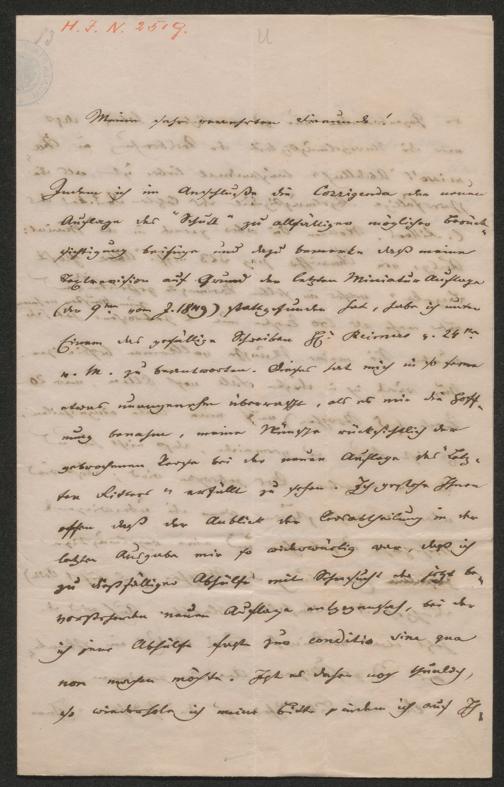 H. I. N. 2519.
Meine sehr verehrten Freunde!
Indem ich im Anschluße die Corrigenda der neuen
Auflage des "Schutt" zu allfälliger möglicher Berück-
sichtigung beifüge und dazu bemerke daß meine
Textrevision auf Grund der letzten Miniatur Auflage
(der 9ten vom J. 1849) stattgefunden hat, habe ich unter
Einem das gefällige Schreiben H: Reimers v. 24ten
v. M. zu beantworten. Dieses hat mich in so ferne
etwas unangenehm überrascht, als es mir die Hoff-
nung benahm, meine Wünsche rücksichtlich der
gebrochenen Verse bei der neuen Auflage des "Letz-
ten Ritters" erfüllt zu sehen. Ich gestehe Ihnen
offen daß der Anblick der Versabtheilung in der
letzten Ausgabe mir so widerwärtig war, daß ich
zu dießfälliger Abhülfe mit Sehnsucht der jetzt be-
vorstehenden neuen Auflage entgegensah, bei der
ich jene Abhülfe fast zur conditio sine qua
non machen möchte. Ist es daher noch thunlich,
so wiederhole ich meine Bitte, indem ich auch